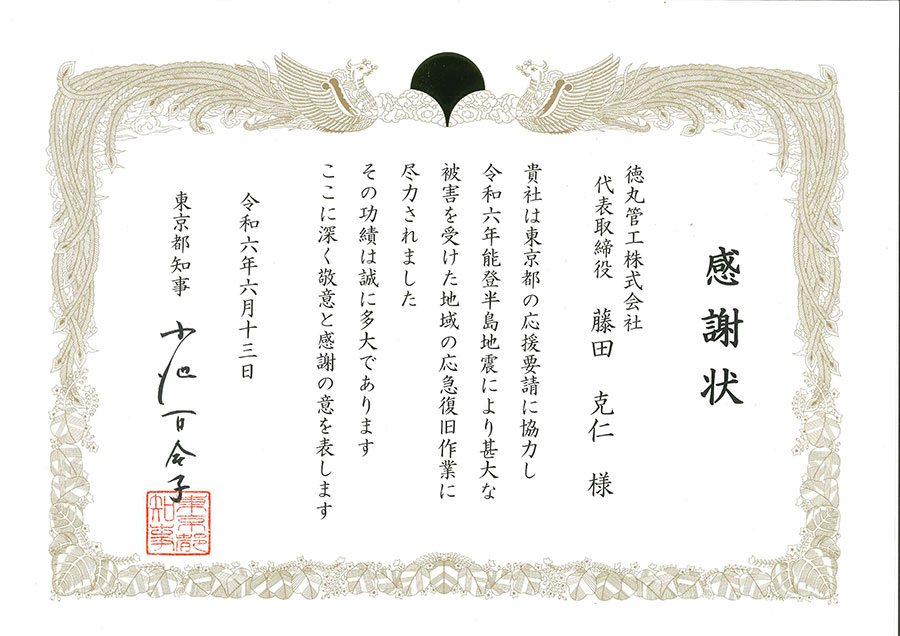 感謝状
徳丸管工株式会社
代表取締役 藤田 克仁 様
貴社は東京都の応援要請に協力し
令和六年能登半島地震により甚大な
被害を受けた地域の応急復旧作業に
尽力されました
その功績は誠に多大であります
ここに深く敬意と感謝の意を表します
令和六年六月十三日
東京都知事 小池百合子
東京都知事